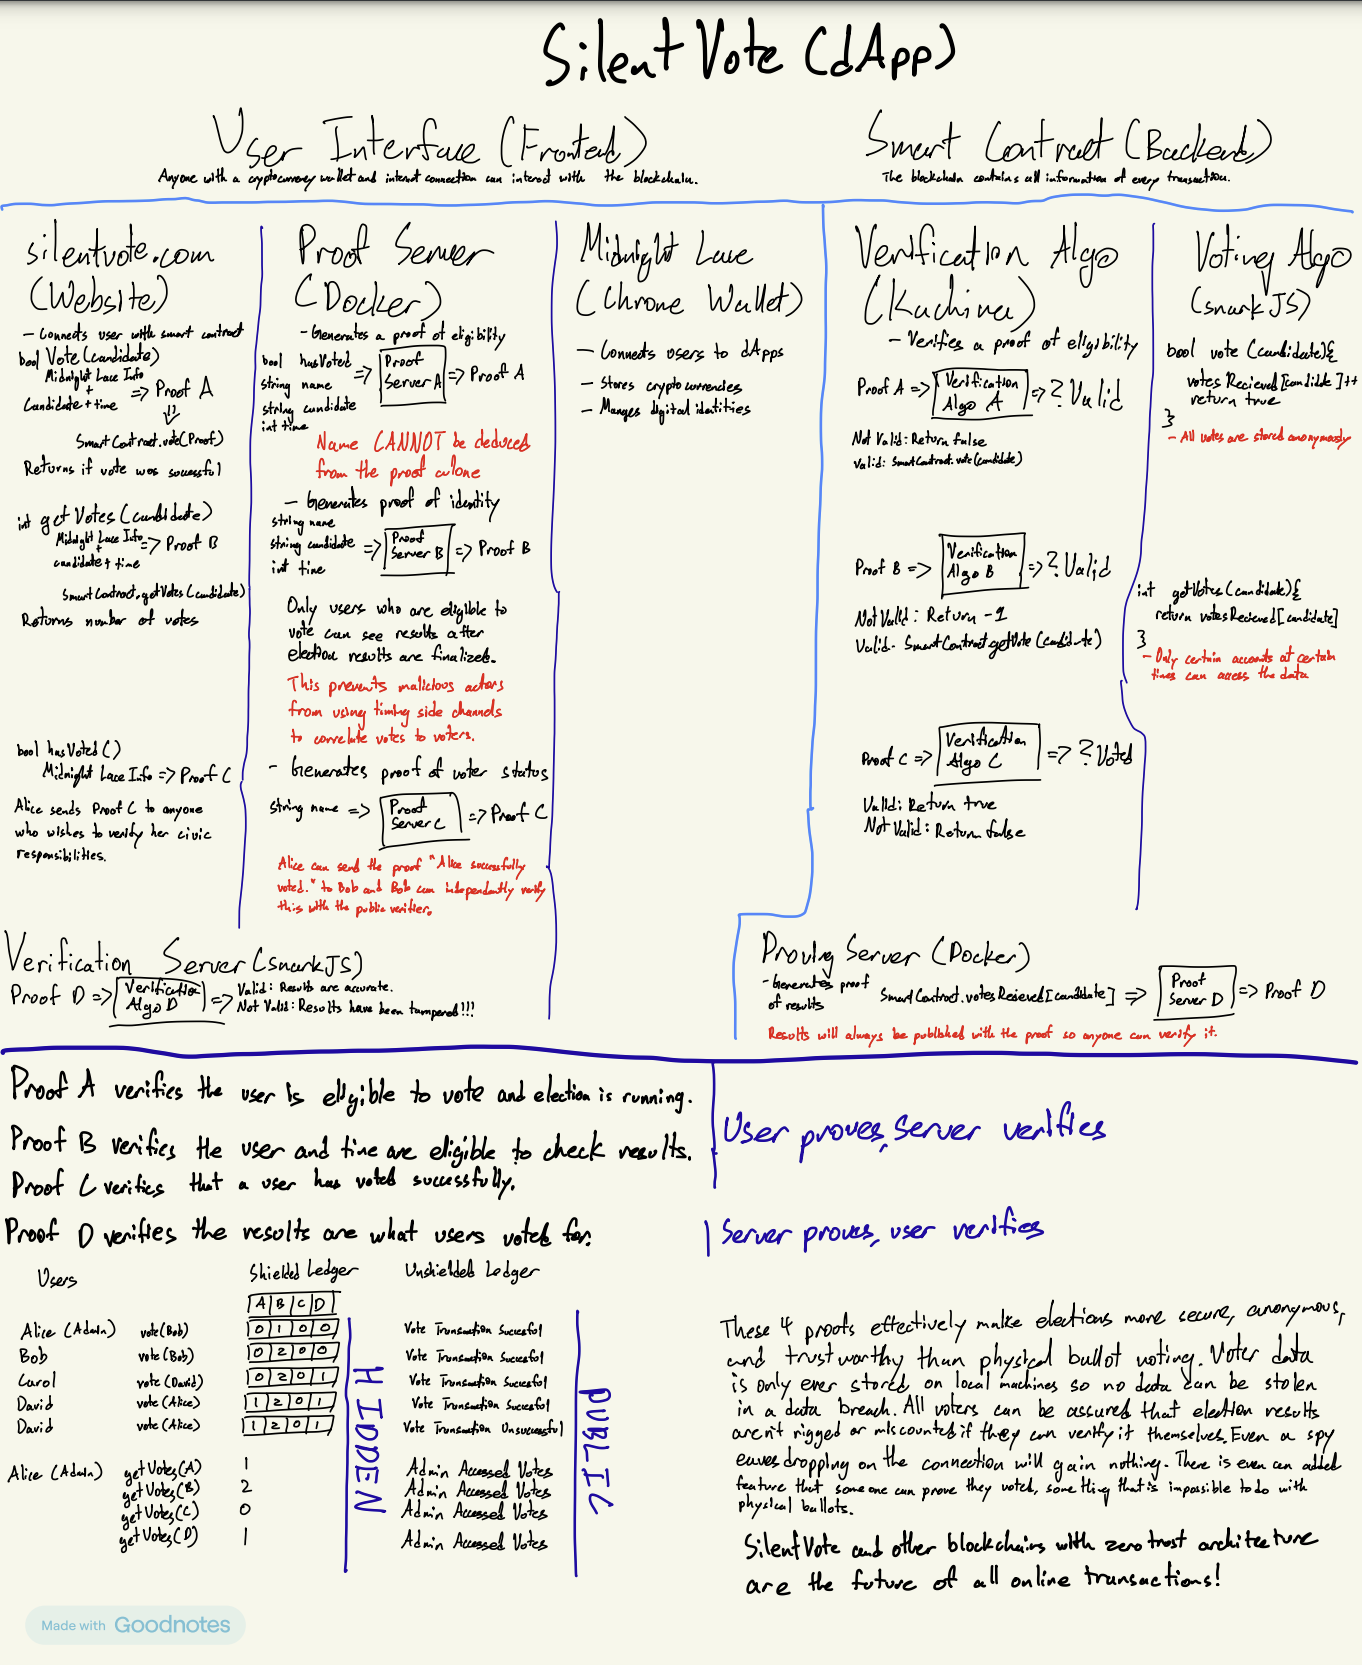 Silent Vote (dApp)
User Interface (Frontend)
Anyone with a cryptocurrency wallet and internet connection can interact with the blockchain.
Smart Contract (Backend)
The blockchain contains all information of every transaction.
silentvote.com
(Website)
- Connects user with smart contract
bool Vote (candidate)
Midnight Lace Info
+
Candidate + time => Proof A
SmartContract.vote(Proof)
Returns if vote was successful
int getVotes (candidate)
Midnight Lace Info
+
candidate + time => Proof B
SmartContract.getVotes (candidate)
Returns number of votes
bool hasVoted ( )
Midnight Lace Info => Proof C
Alice sends Proof C to anyone
who wishes to verify her civic
responsibilities.
Proof Server
(Docker)
- Generates a proof of eligibility
bool hasVoted
string name
string candidate
int time
=> Proof Server A => Proof A
Name CANNOT be deduced
from the proof alone
- Generates proof of identity
string name
string candidate
int time
=> Proof Server B => Proof B
Only users who are eligible to
vote can see results after
election results are finalized.
This prevents malicious actors
from using timing side channels
to correlate votes to voters.
- Generates proof of voter status
string name => Proof Server C => Proof C
Alice can send the proof "Alice successfully
voted." to Bob and Bob can independently verify
this with the public verifier.
Midnight Lace
(Chrome Wallet)
- Connects users to dApps
- Stores cryptocurrencies
- Manges digital identities
Verification Algo
(Kachina)
- Verifies a proof of eligibility
Proof A => Verification Algo A => ? Valid
Not Valid: Return false
Valid: SmartContract.vote(candidate)
Proof B => Verification Algo B => ? Valid
Not Valid: Return -1
Valid- SmartContract.getVote (candidate)
Proof C => Verification Algo C => ? Voted
Valid: Return true
Not Valid: Return false
Voting Algo
(snarkJS)
bool vote (candidate){
votesRecieved[candidate]++
return true
}
- All votes are stored anonymously
int getVotes (candidate){
return votesRecieved[candidate]
}
- Only certain accounts at certain
times can access the data
Verification Server (snarkJS)
Proof D => Verification Algo D => Valid: Results are accurate.
Not Valid: Results have been tampered!!!
Proving Server (Docker)
- Generates proof
of results
SmartContract.votesRecieved[candidate] => Proof Server D => Proof D
Results will always be published with the proof so anyone can verify it.
Proof A verifies the user is eligible to vote and election is running.
Proof B verifies the user and time are eligible to check results.
Proof C verifies that a user has voted successfully.
User proves, Server verifies
Proof D verifies the results are what users voted for.
Server proves, user verifies
Users Shielded Ledger Unshielded Ledger
A B C D
Alice (Admin) vote(Bob) 0 1 0 0 Vote Transaction Succesful
Bob vote(Bob) 0 2 0 0 Vote Transaction Succesful
Carol vote (David) 0 2 0 1 Vote Transaction Succesful
David vote (Alice) 1 2 0 1 Vote Transaction Succesful
David vote (Alice) 1 2 0 1 Vote Transaction Unsuccessful
Alice (Admin) getVotes(A) 1 Admin Accessed Votes
getVotes(B) 2 Admin Accessed Votes
getVotes(C) 0 Admin Accessed Votes
getVotes(D) 1 Admin Accessed Votes
HIDDEN
PUBLIC
These 4 proofs effectively make elections more secure, anonymous,
and trustworthy than physical ballot voting. Voter data
is only ever stored on local machines so no data can be stolen
in a data breach. All voters can be assured that election results
aren't rigged or miscounted if they can verify it themselves. Even a spy
eavesdropping on the connection will gain nothing. There is even an added
feature that someone can prove they voted, something that is impossible to do with
physical ballots.
SilentVote and other blockchains with zero trust architecture
are the future of all online transactions!
Made with Goodnotes